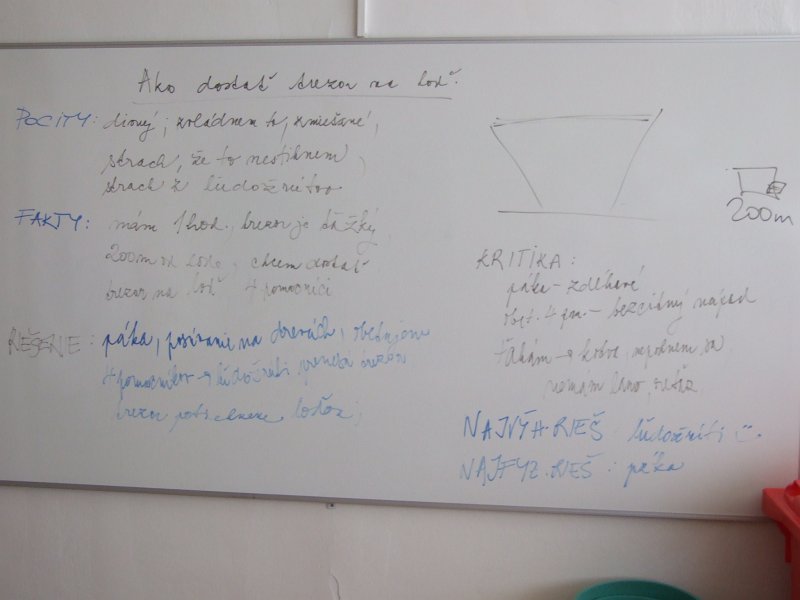 Ako dostať trezor na loď.
POCITY: divný; zvládnem to, zmiešané,
strach, že to nestihnem,
strach z ľudožrútov
FAKTY: mám 1 hod., trezor je ťažký,
200m od lode, chcem dostať
trezor na loď 4 pomocníci
RIEŠENIE: páka, posúvanie na drevách, obetujeme
4 pomocníkov → ľudožrúti prenesú trezor
trezor loďou;
200m
KRITIKA:
páka - zdĺhavé
objet. 4 pom. - bezcitný nápad
ťahám → krváce, nepohnem sa
nemám lano, reťaz
NAJVÝH. RIEŠ: ľudožrúti :-
NAJFYZ. RIEŠ: páka